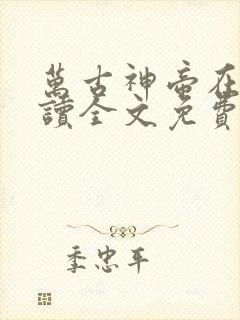 萬古神帝在
讀全文免費
季忠平